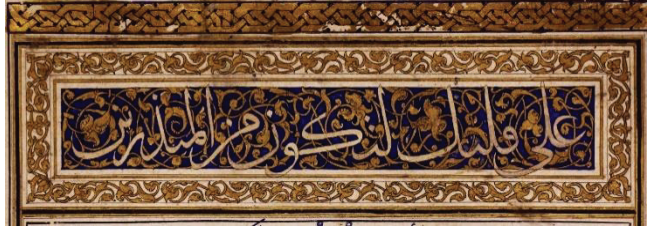 على قلبك لتكون من المنذرين